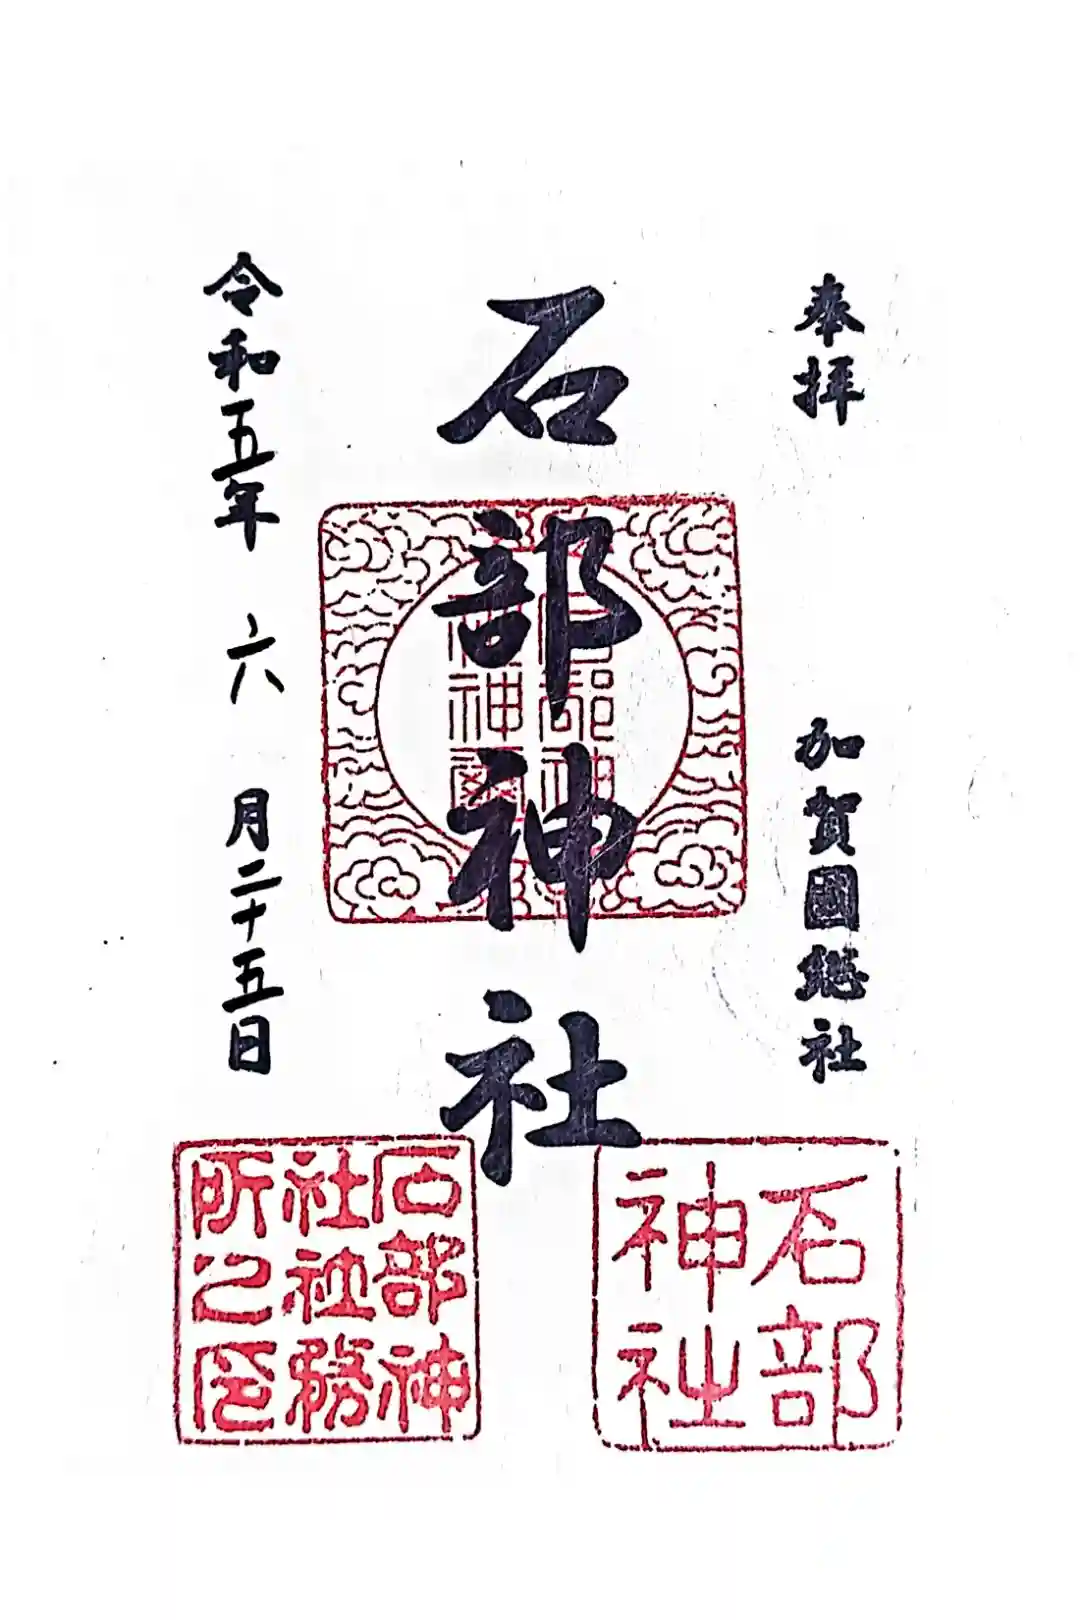 奉拝
加賀國総社
石部神社
令和五年 六 月二十五日
石部
神社
石部神
社社務
所之印